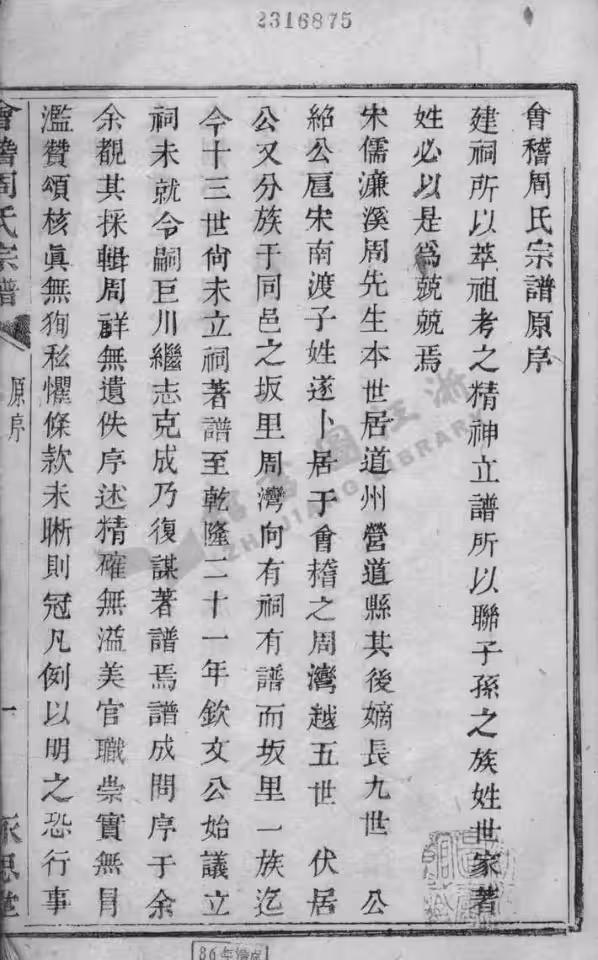 2316875
會稽周氏宗譜原序
建祠所以萃祖考之精神立譜所以聯子孫之族姓世家著
姓必以是爲兢兢焉
宋儒濂溪周先生本世居道州營道縣其後嫡長九世 公
紹公扈宋南渡子姓遂卜居于會稽之周灣越五世 伏居
公又分族于同邑之坂里周灣向有祠有譜而坂里一族迄
今十三世尙未立祠著譜至乾隆二十一年欽文公始議立
祠未就令嗣巨川繼志克成乃復謀著譜焉譜成問序于余
余觀其採輯周詳無遺佚序述精確無溢美官職崇實無冒
濫贊頌核眞無狥私懼條款未晰則冠凡例以明之恐行事
會稽周氏宗譜
原序
一
永思堂
浙江圖書館
ZHEJIANG LIBRARY